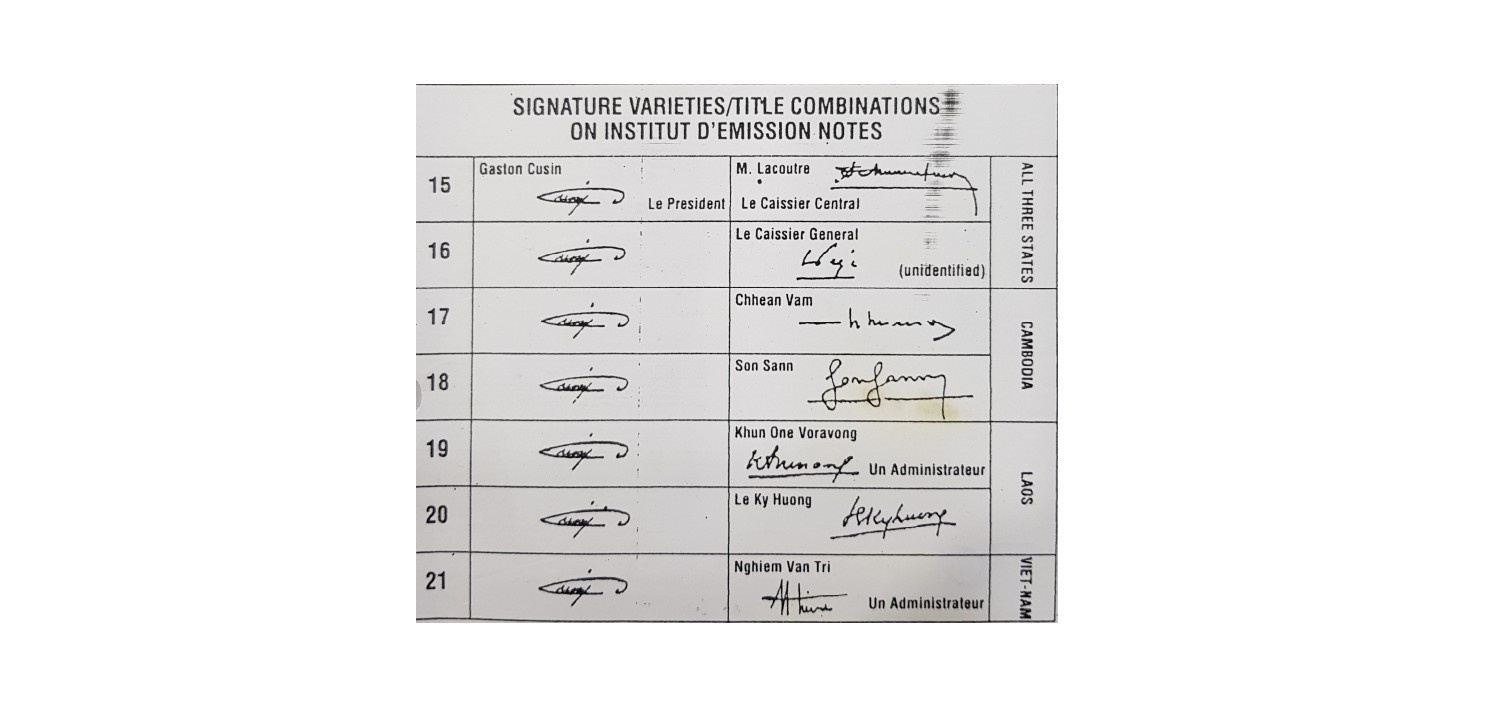 SIGNATURE VARIETIES/TITLE COMBINATIONS
ON INSTITUT D'EMISSION NOTES
15
Gaston Cusin
Le President
M. Lacoutre
Le Caissier Central
ALL THREE STATES
16
Le Caissier General
(unidentified)
17
Chhean Vam
CAMBODIA
18
Son Sann
19
Khun One Voravong
Un Administrateur
LAOS
20
Le Ky Huong
21
Nghiem Van Tri
Un Administrateur
VIET-NAM